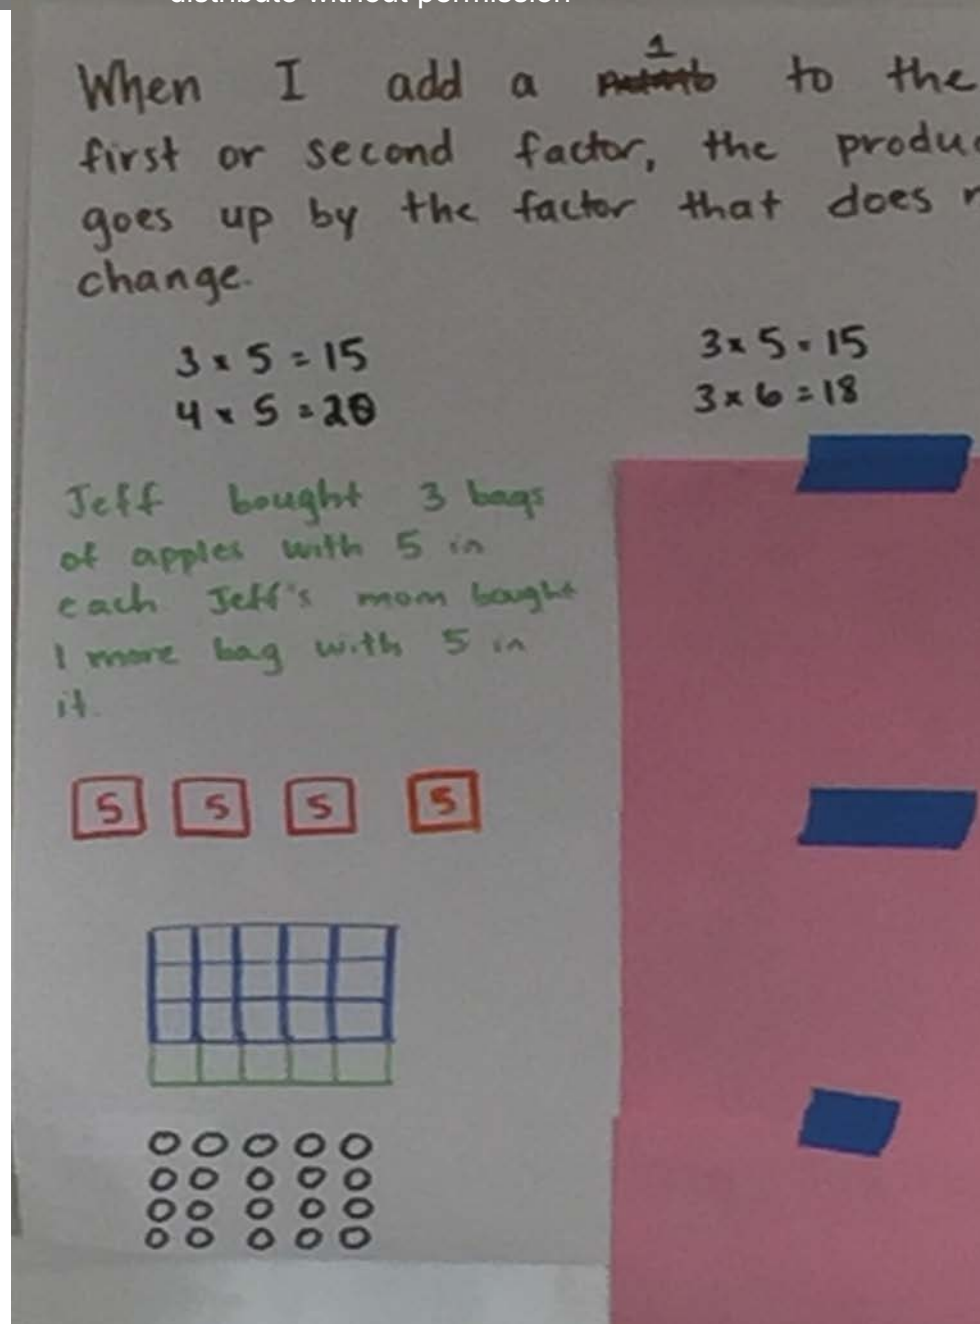 distribute without permission
When I add a 1 to the
first or second factor, the produc
goes up by the factor that does n
change.
3 x 5 = 15
4 x 5 = 20
3 x 5 = 15
3 x 6 = 18
Jeff bought 3 bags
of apples with 5 in
each Jeff's mom bought
1 more bag with 5 in
it.
5 5 5 5